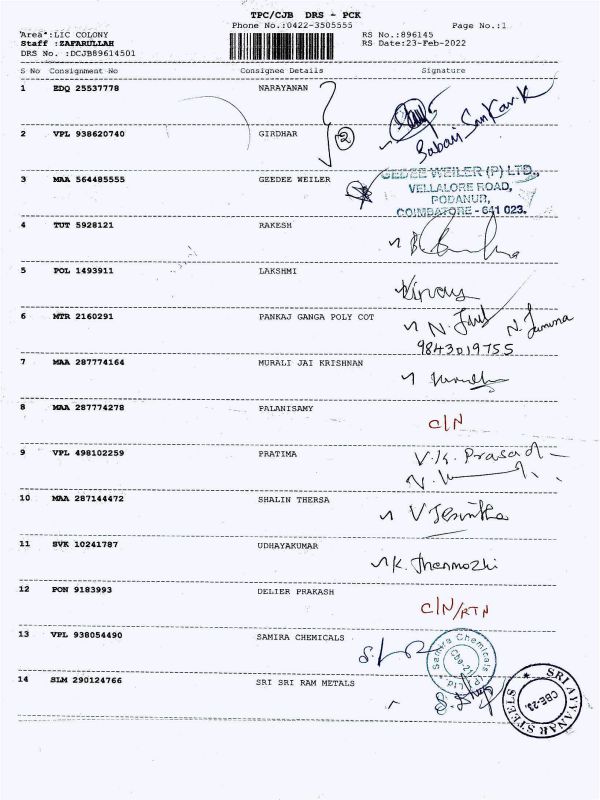 TPC/CJB DRS - PCK
Phone No.:0422-3505555 Page No.:1
Area :LIC COLONY RS No.:896145
Staff :ZAFARULLAH RS Date:23-Feb-2022
DRS No. :DCJB89614501
S No Consignment No Consignee Details Signature
1 EDQ 25537778 NARAYANAN
Babaji Sankar K
2 VPL 938620740 GIRDHAR 2
3 MAA 564485555 GEEDEE WEILER
GEDEE WEILER (P) LTD.,
VELLALORE ROAD,
PODANUR,
COIMBATORE - 641 023.
4 TUT 5928121 RAKESH
5 POL 1493911 LAKSHMI
6 MTR 2160291 PANKAJ GANGA POLY COT
9843019755
7 MAA 287774164 MURALI JAI KRISHNAN
8 MAA 287774278 PALANISAMY
C/N
9 VPL 498102259 PRATIMA V.K. Prasad
10 MAA 287144472 SHALIN THERSA
V Jesintha
11 SVK 10241787 UDHAYAKUMAR
K. Thenmozhi
12 PON 9183993 DELIER PRAKASH
C/N/RTN
13 VPL 938054490 SAMIRA CHEMICALS
Samira Chemicals (P) Ltd.
14 SLM 290124766 SRI SRI RAM METALS
SRI AYYANAR STEELS
CBE-23.